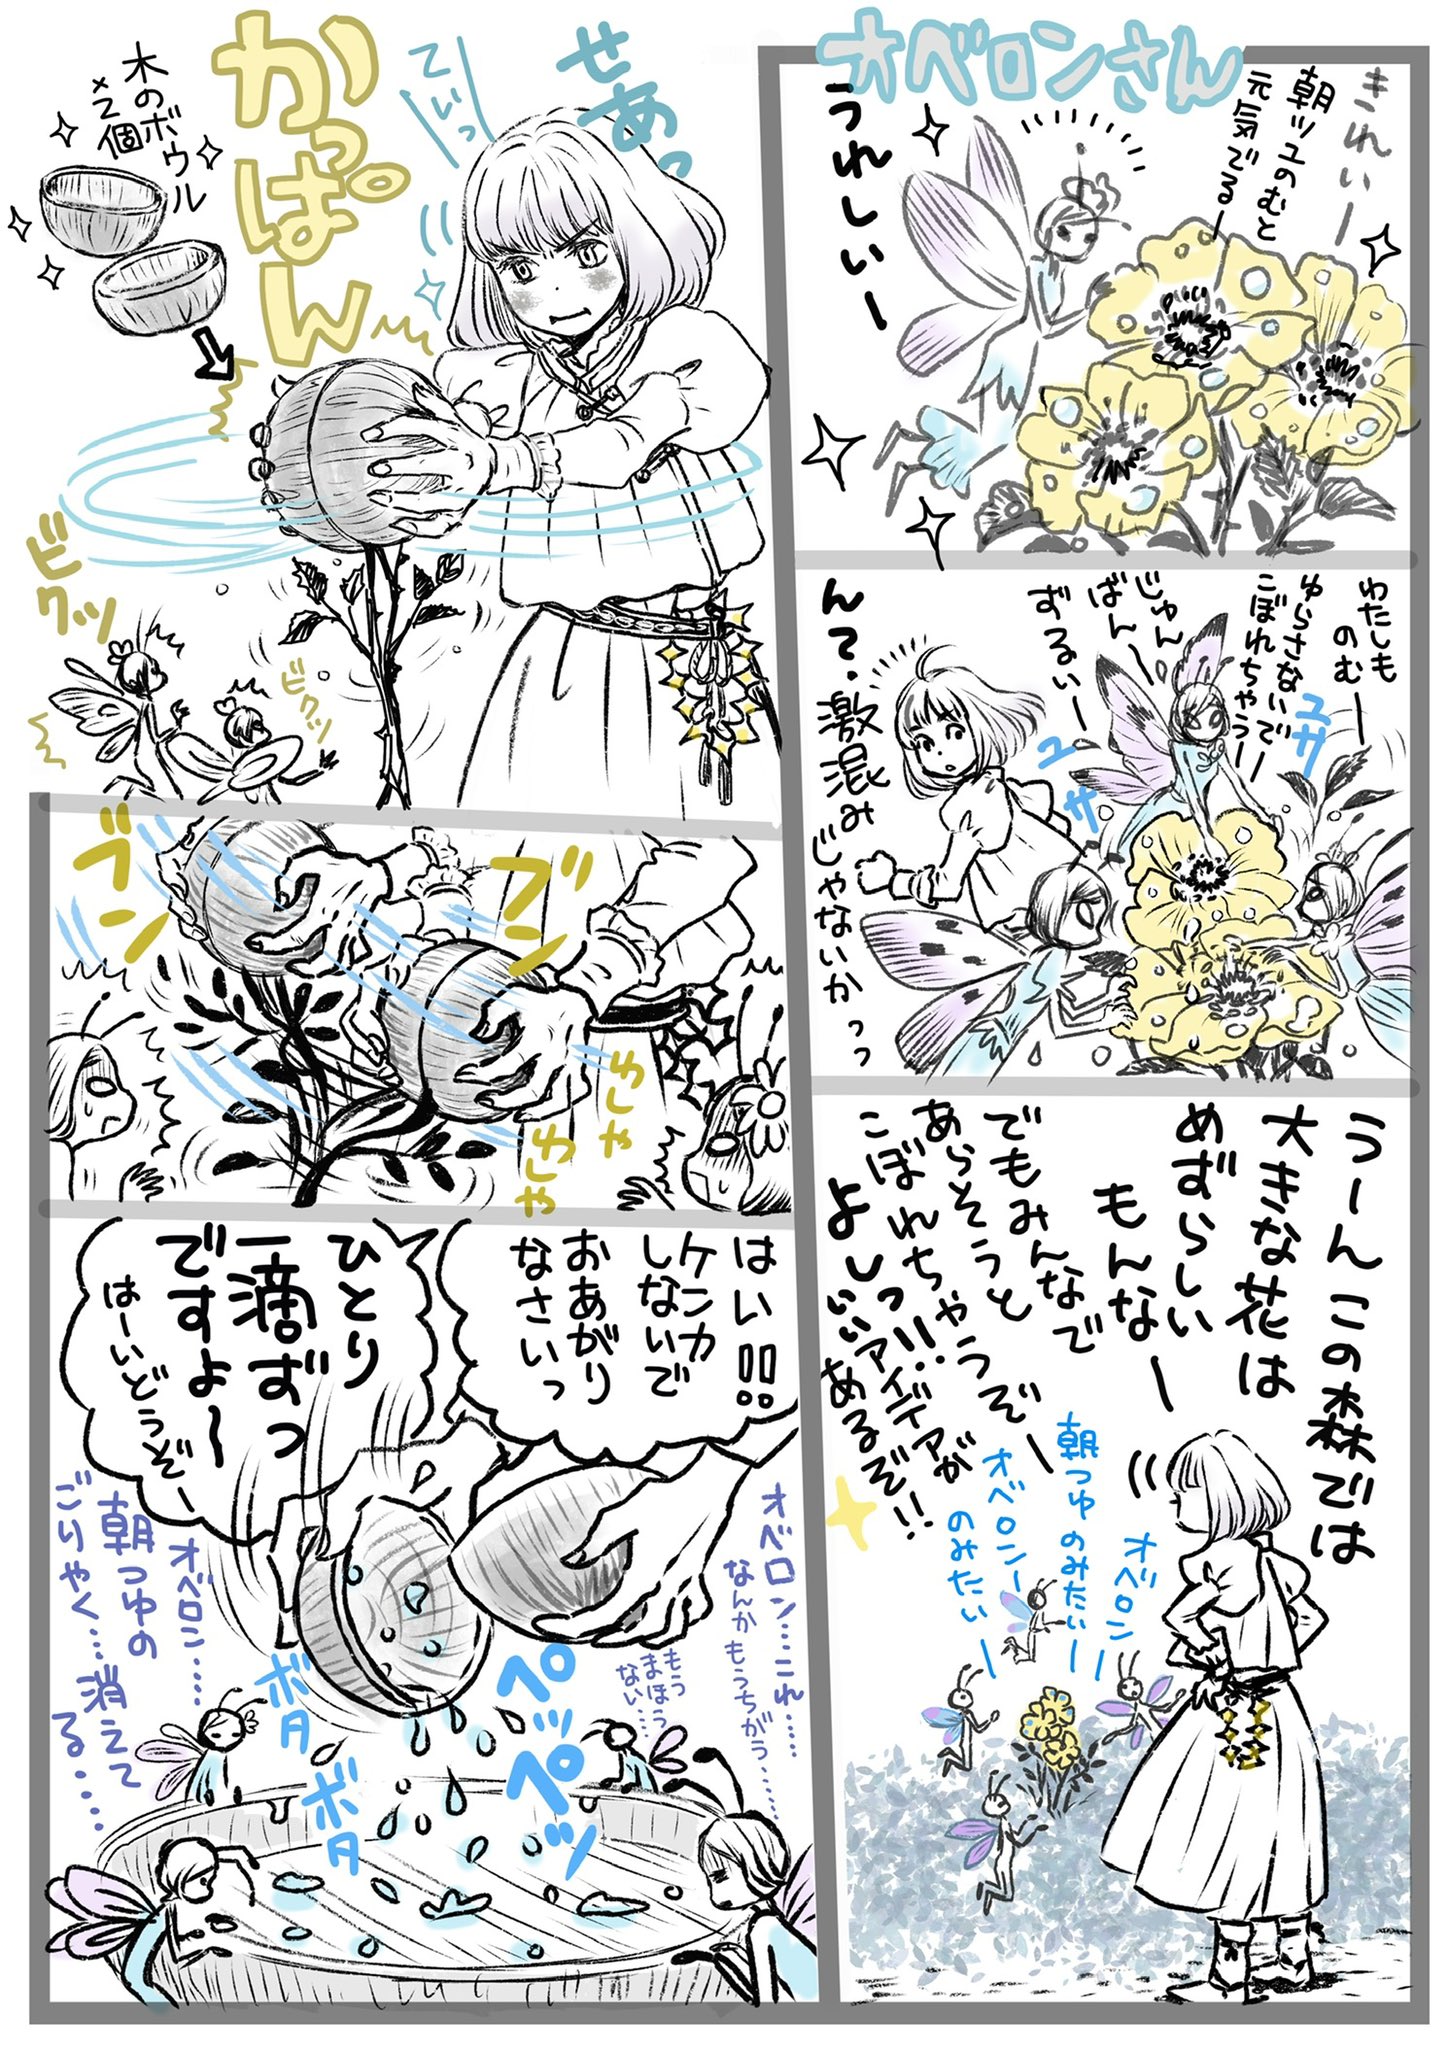 オベロンさん
きれいー
朝ツユのむと
元気でるー
うれしいー
わたしも
のむー
ゆらさないでー
こぼれちゃうー
じゅん
ばんー
ずるいー
ユサ
ユサ
ん?.激混み
じゃないかっっ
うーんこの森では
大きな花は
めずらしい
もんなー
でもみんなで
あらそうと
こぼれちゃうぞー
よしっ!!.
よしいいアイデアが
あるぞ!!
オベロン
朝つゆのみたいー
オベロンー
のみたいー
せあっ
ていっ
かっぱん
木のボウル
×2個
ビクッ
ビクッ
ブン
ブン
わしゃ
わしゃ
はい!!
ケンカ
しないで
おあがり
なさいっ
ひとり
一滴ずっ
ですよ〜
はーいどうぞー
オベロン…これ……
なんかもうちがう……
もう
まほう
ない…
ペッペッ
ボタ
ボタ
オベロン……
朝つゆの
ごりやく…消えて
る……